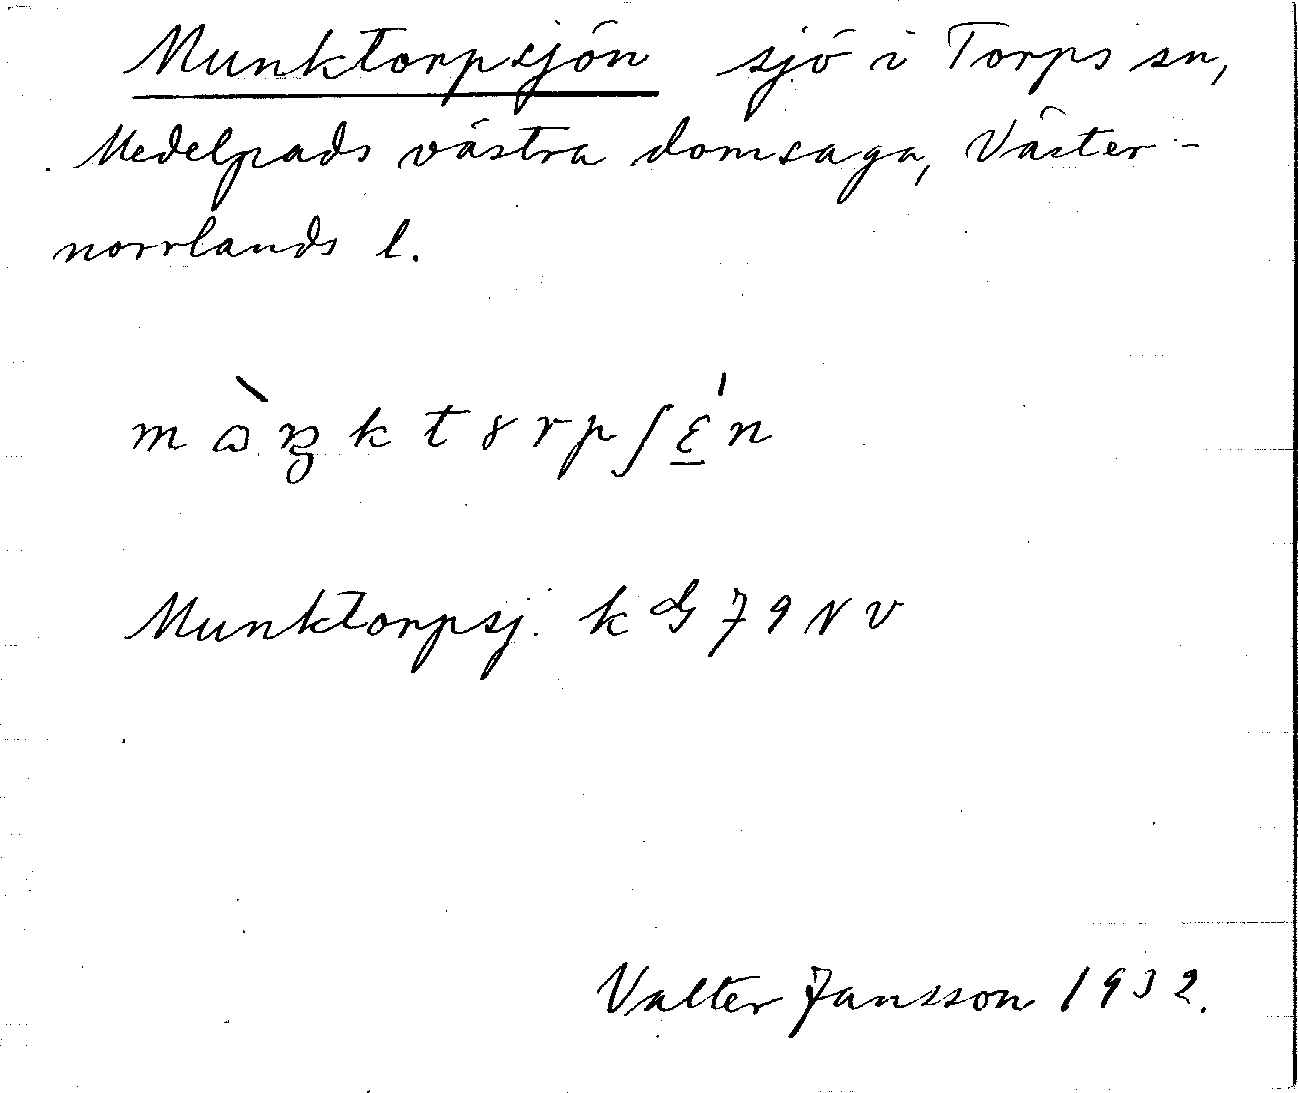 Munktorpsjön sjö i Torps sn,
Medelpads västra domsaga, Väster-
norrlands l.
Munktorpsj. k G 79 NV
Valter Jansson 1932.